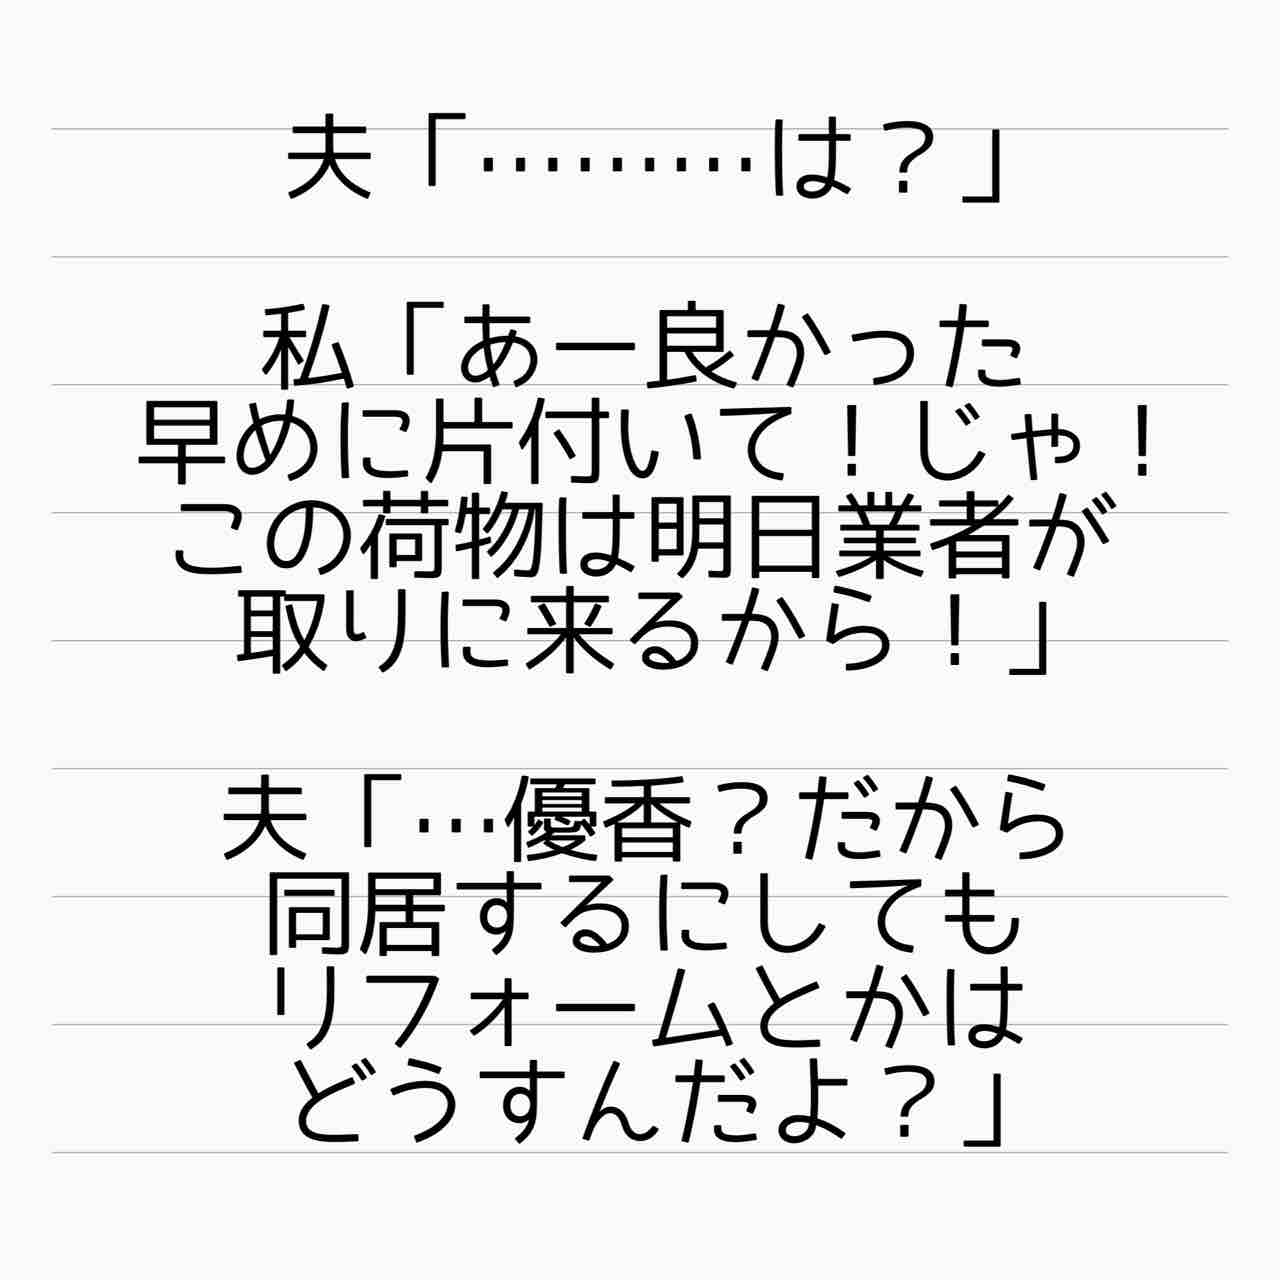 夫「………は？」
私「あー良かった
早めに片付いて！じゃ！
この荷物は明日業者が
取りに来るから！」
夫「…優香？だから
同居するにしても
リフォームとかは
どうすんだよ？」